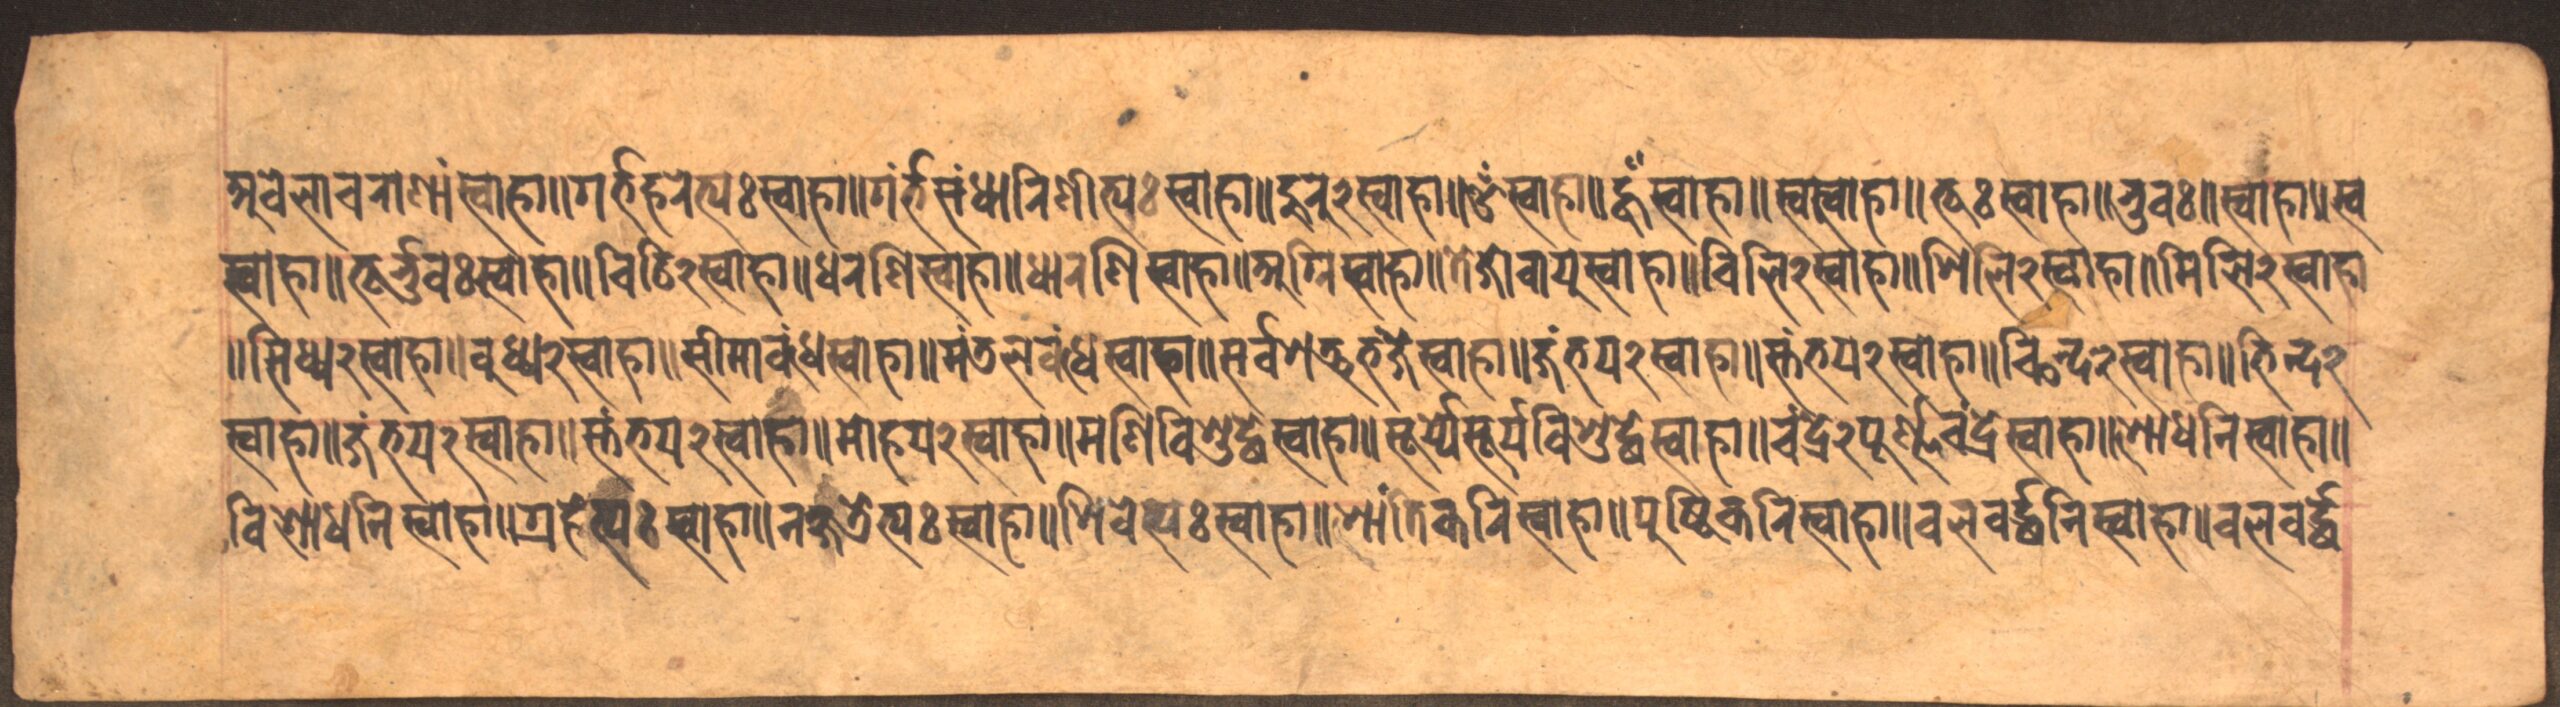 अवेलाचराणां स्वाहा॥गर्भहरेभ्यः स्वाहा॥गर्भसंधारिणीभ्यः स्वाहा॥हुलु२स्वाहा॥ॐ स्वाहा॥ स्वाहा॥स्व स्वाहा॥भूः स्वाहा॥भुवः॥स्वाहा॥स्व
स्वाहा॥भूर्भुवः स्वाहा॥चिटि२स्वाहा॥धरणि स्वाहा॥धारणि स्वाहा॥अग्नि स्वाहा॥तेजोवायु स्वाहा॥चिलि२स्वाहा॥शिलि२स्वाहा॥मिलि२स्वाहा
॥सिध्य२स्वाहा॥वुध्य२स्वाहा॥सीमावंध स्वाहा॥मंडलवंध स्वाहा॥सर्वशत्रु स्वाहा॥जंभय२स्वाहा॥स्तंभय२स्वाहा॥छिन्द२स्वाहा॥भिन्द२
स्वाहा॥जंभय२स्वाहा॥स्तंभय२स्वाहा॥मोहय२स्वाहा॥मणिविशुद्धे स्वाहा॥सूर्य्ये सूर्यविशुद्धे स्वाहा॥चंद्रे२पूर्णचंद्रे स्वाहा॥शोधनि स्वाहा॥
विशोधनि स्वाहा॥ग्रहेभ्यः स्वाहा॥नक्षत्रेभ्यः स्वाहा॥शिवेभ्यः स्वाहा॥शांतिकरि स्वाहा॥पुष्टिकरि स्वाहा॥वलवर्द्धनि स्वाहा॥वलवर्द्ध